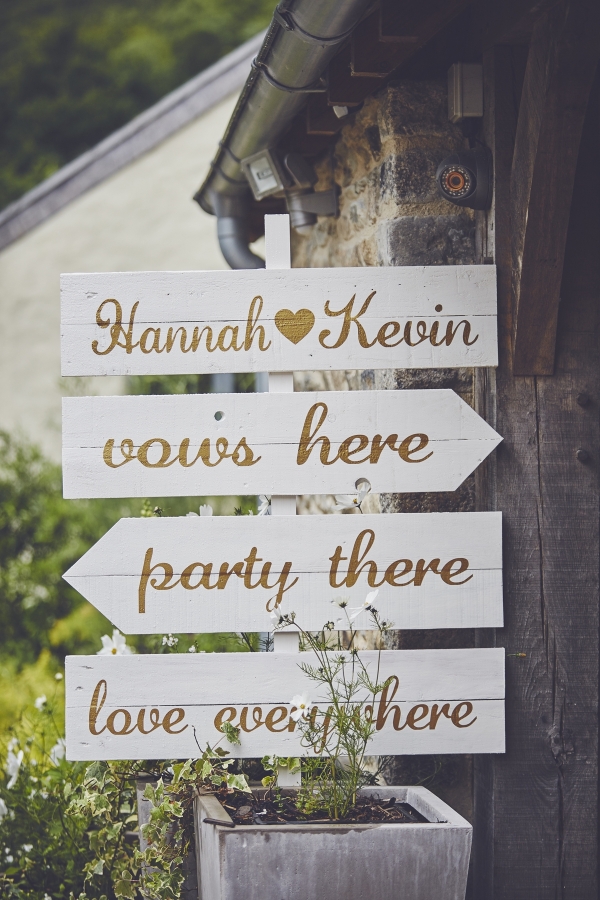 Hannah ♥ Kevin
vows here
party there
love everywhere